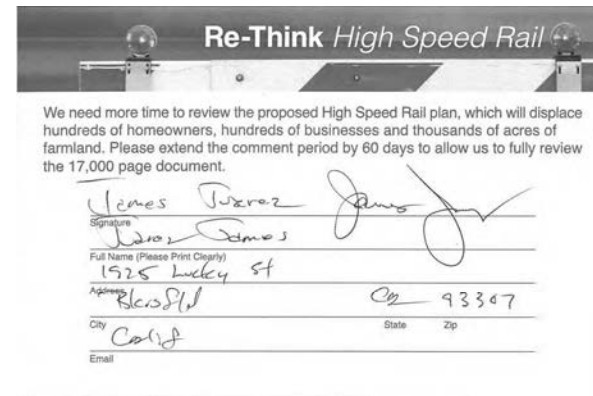 Re-Think High Speed Rail
We need more time to review the proposed High Speed Rail plan, which will displace
hundreds of homeowners, hundreds of businesses and thousands of acres of
farmland. Please extend the comment period by 60 days to allow us to fully review
the 17,000 page document.
James Juarez James
Signature
Juarez James
Full Name (Please Print Clearly)
1925 Lucky St
Address
Bkrsfld Ca 93307
City State Zip
Calif
Email